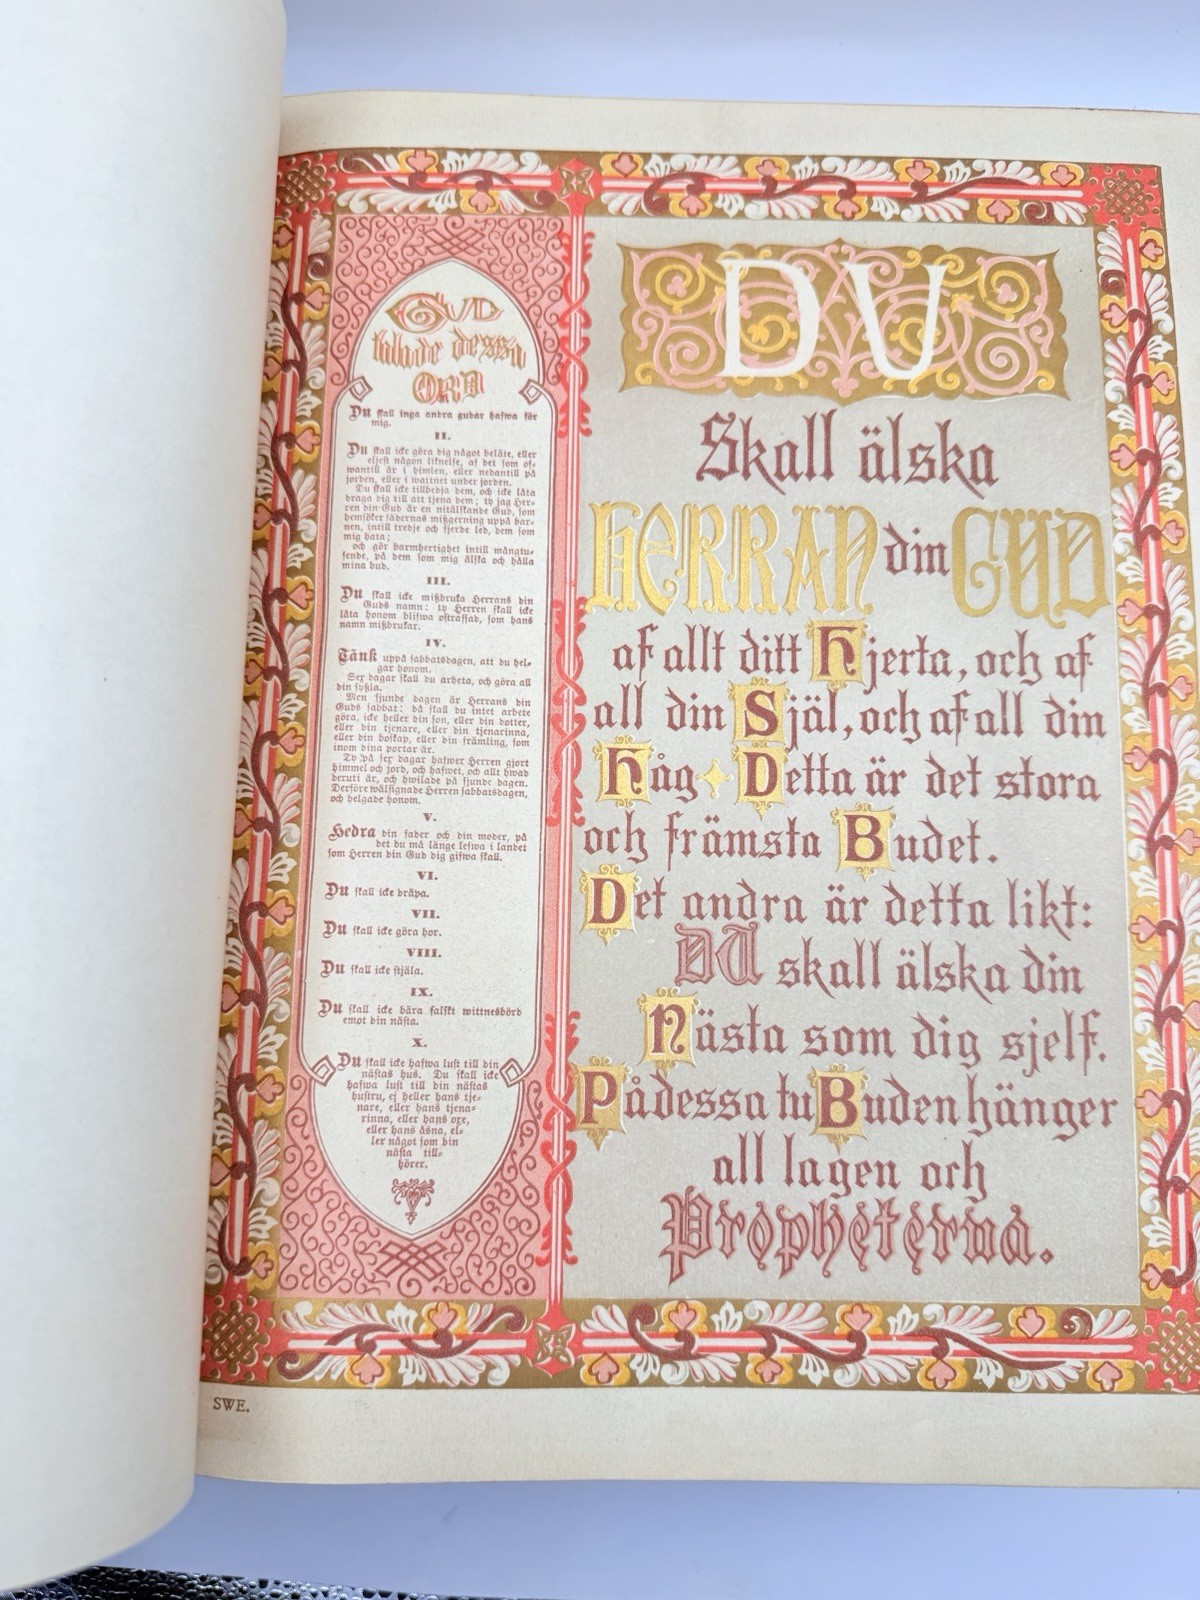 GUD
talade dessa
ORD
Du skall inga andra gudar hafwa för
mig.
II.
Du skall icke göra dig något beläte, eller
eljest någon liknelse, af det som of-
wantill är i himlen, eller nedantill på
jorden, eller i wattnet under jorden.
Du skall icke tillbedja dem, och icke låta
draga dig till att tjena dem; ty jag Her-
ren din Gud är en nitälskande Gud, som
hemsöker fädernas mißgerning uppå bar-
nen, intill tredje och fjerde led, dem som
mig hata;
och gör barmhertighet intill mångtu-
sende, på dem som mig älska och hålla
mina bud.
III.
Du skall icke mißbruka Herrans din
Guds namn: ty Herren skall icke
låta honom blifwa ostraffad, som hans
namn mißbrukar.
IV.
Tänk uppå sabbatsdagen, att du hel-
gar honom.
Sex dagar skall du arbeta, och göra all
din syßla.
Men sjunde dagen är Herrans din
Guds sabbat: då skall du intet arbete
göra, icke heller din son, eller din dotter,
eller din tjenare, eller din tjenarinna,
eller din boskap, eller din främling, som
inom dina portar är.
Ty på sex dagar hafwer Herren gjort
himmel och jord, och hafwet, och allt hwad
deruti är, och hwilade på sjunde dagen.
Derföre wälsignade Herren sabbatsdagen,
och helgade honom.
V.
Hedra din fader och din moder, på
det du må länge lefwa i landet
som Herren din Gud dig gifwa skall.
VI.
Du skall icke dräpa.
VII.
Du skall icke göra hor.
VIII.
Du skall icke stjäla.
IX.
Du skall icke bära falskt wittnesbörd
emot din nästa.
X.
Du skall icke hafwa lust till din
nästas hus. Du skall icke
hafwa lust till din nästas
hustru, ej heller hans tje-
nare, eller hans tjena-
rinna, eller hans oxe,
eller hans åsna, el-
ler något som din
nästa till-
hörer.
DU
Skall älska
HERRAN din GUD
af allt ditt Hjerta, och af
all din Själ, och af all din
Håg Detta är det stora
och främsta Budet.
Det andra är detta likt:
DU skall älska din
Nästa som dig sjelf.
På dessa tu Buden hänger
all lagen och
Propheterna.
SWE.